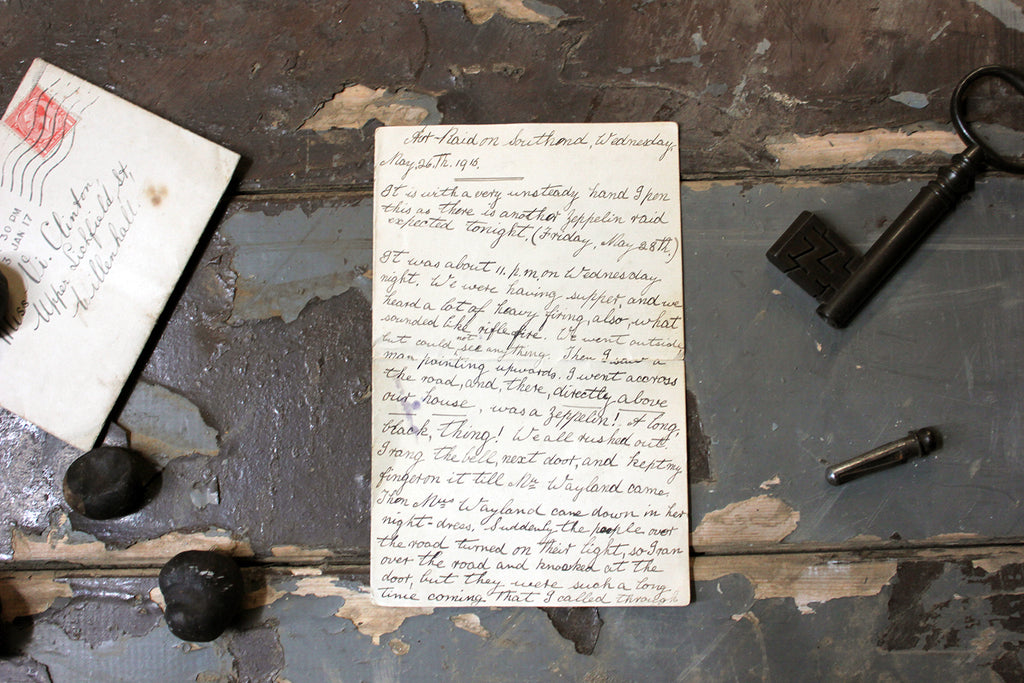 3 30 PM
3 JAN 17
Miss W. Clinton,
Upper Lichfield St,
Willenhall.
Air-Raid on Southend, Wednesday,
May, 26.Th. 1915.
It is with a very unsteady hand I pen
this as there is another Zeppelin raid
expected tonight. (Friday, May 28th.)
It was about 11. p.m. on Wednesday
night. We were having supper, and we
heard a lot of heavy firing, also, what
sounded like rifle fire. We went outside
but could not see anything. Then I saw a
man pointing upwards. I went accross
the road, and, there, directly above
our house, was a Zeppelin! A long,
black, Thing! We all rushed out
I rang the bell, next door, and kept my
finger on it till Mr Wayland came.
Then Mrs Wayland came down in her
night-dress. Suddenly the people over
the road turned on their light, so I ran
over the road and knocked at the
door, but they were such a long
time coming. That I called through